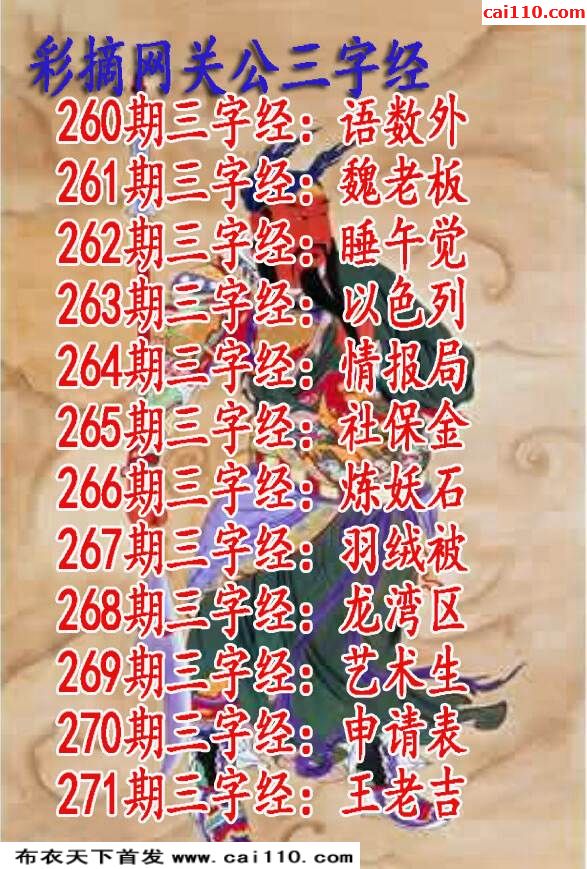 cai110.com
彩摘网关公三字经
260期三字经：语数外
261期三字经：魏老板
262期三字经：睡午觉
263期三字经：以色列
264期三字经：情报局
265期三字经：社保金
266期三字经：炼妖石
267期三字经：羽绒被
268期三字经：龙湾区
269期三字经：艺术生
270期三字经：申请表
271期三字经：王老吉
布衣天下首发 www.cai110.com